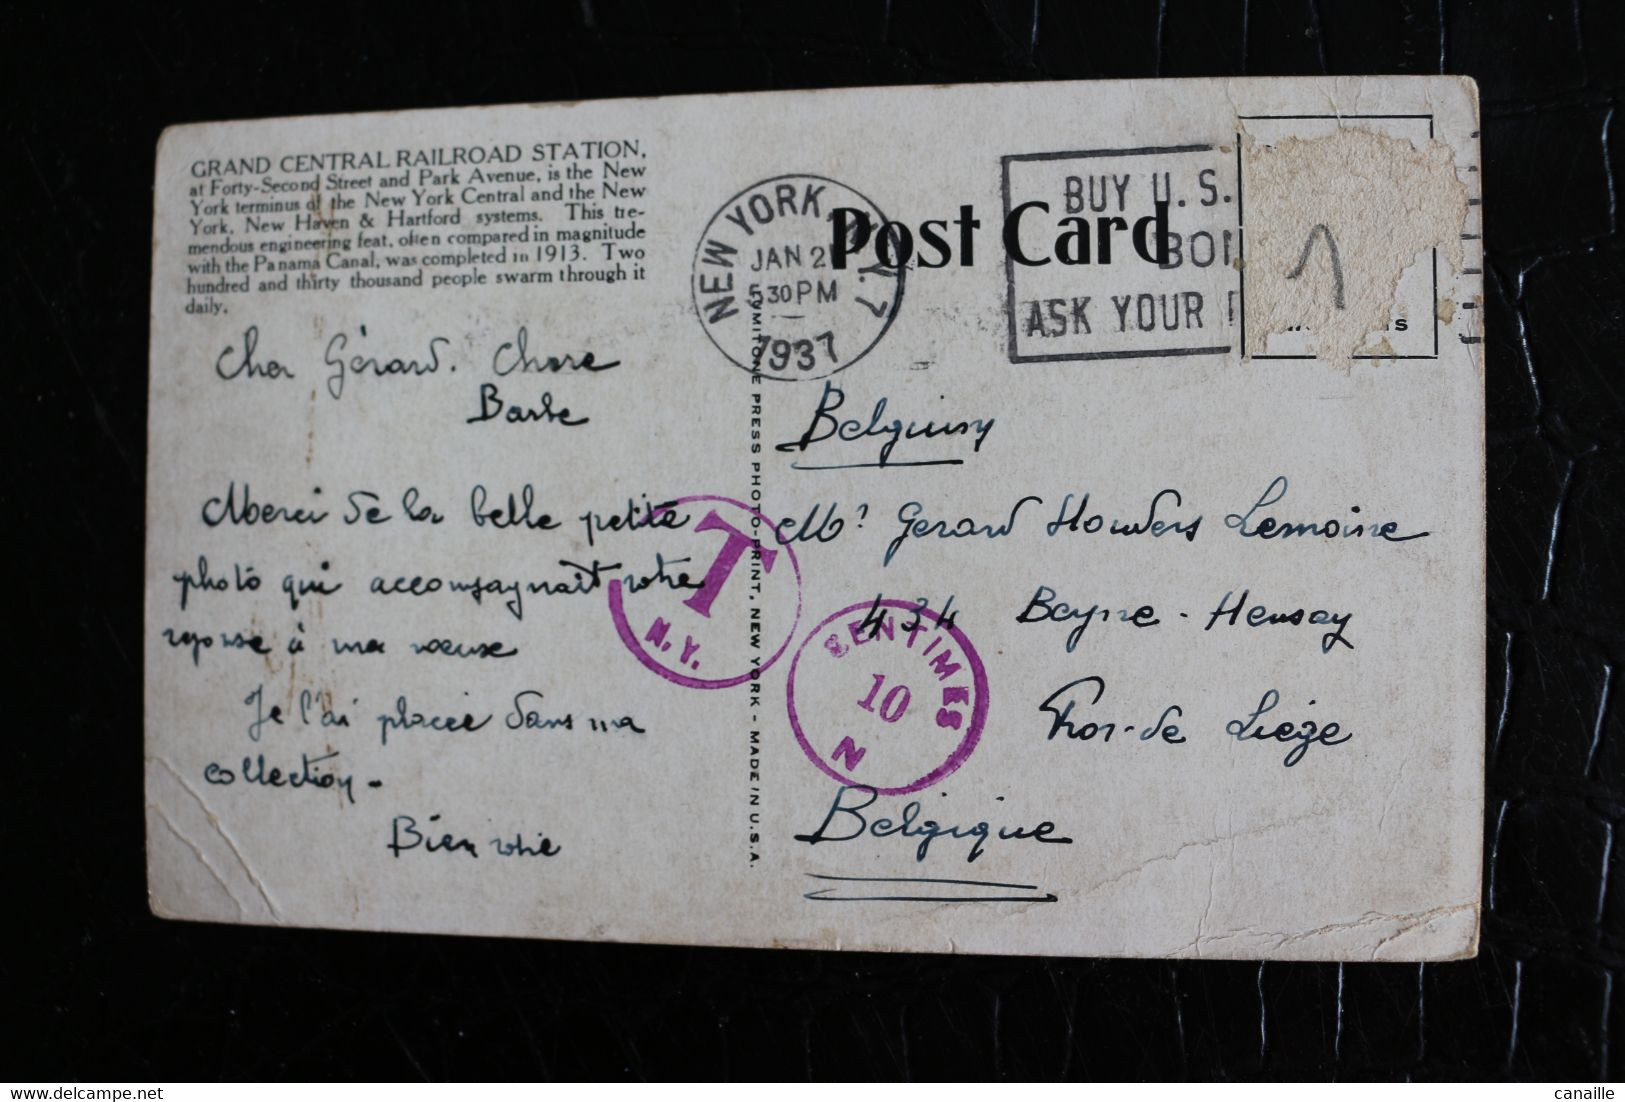 GRAND CENTRAL RAILROAD STATION,
at Forty-Second Street and Park Avenue, is the New
York terminus of the New York Central and the New
York, New Haven & Hartford systems. This tre-
mendous engineering feat, often compared in magnitude
with the Panama Canal, was completed in 1913. Two
hundred and thirty thousand people swarm through it
daily.
Cher Gérard. Chere
Barbe
Merci de la belle petite
photo qui accompagnait votre
reponse à ma
Je l'ai placée dans ma
collection -
Bien votre
LUMITONE PRESS PHOTO-PRINT, NEW YORK - MADE IN U.S.A.
Post Card
NEW YORK, N.Y. 7
JAN 2
5 30 PM
1937
BUY U.S.
BON
ASK YOUR
s
1
T
N.Y.
CENTIMES
10
N
Belgium
Mr Gerard Houders Lemoine
434 Beyne-Heusay
Liége
Belgique
canaille